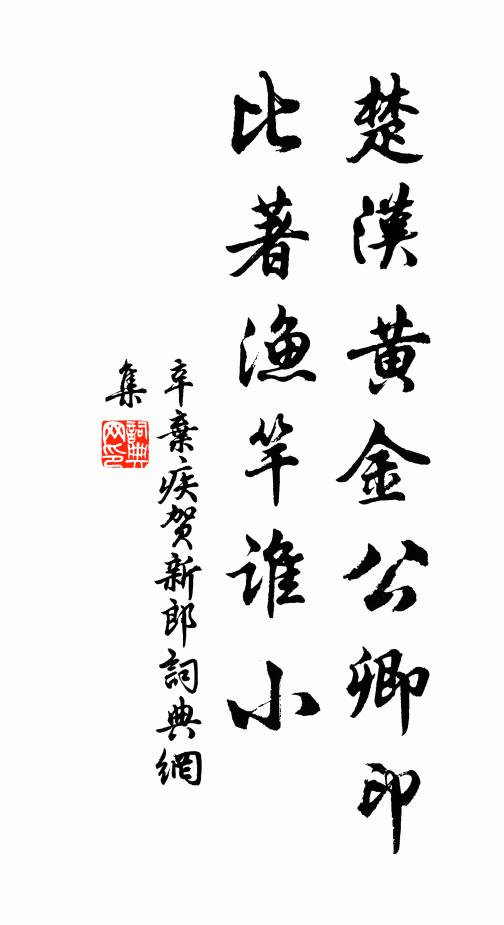 楚漢黄金公卿印
比著漁竿谁小
辛棄疾贺新郎詞典網
集
詞典
网印